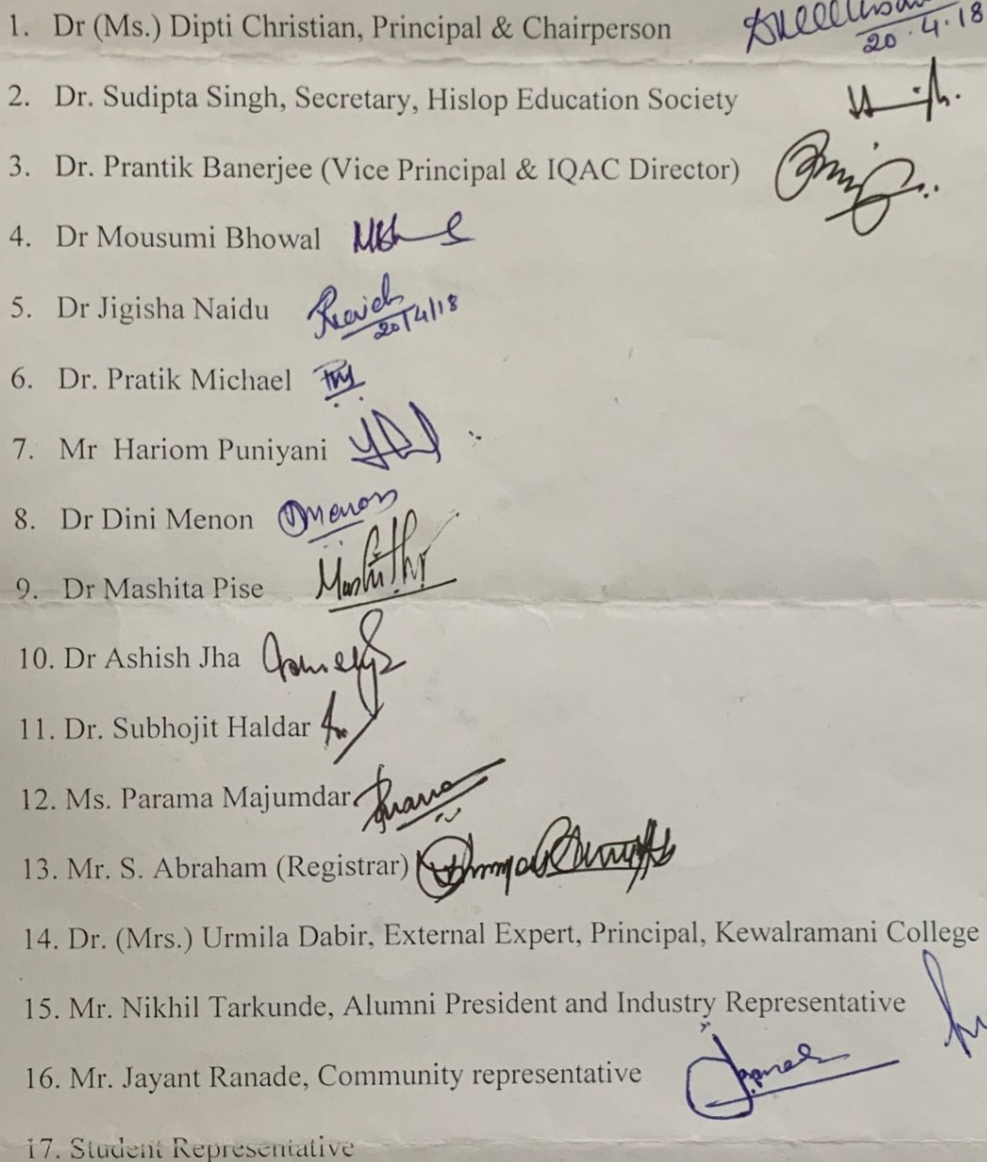 1. Dr (Ms.) Dipti Christian, Principal & Chairperson
20.4.18
2. Dr. Sudipta Singh, Secretary, Hislop Education Society
3. Dr. Prantik Banerjee (Vice Principal & IQAC Director)
4. Dr Mousumi Bhowal
5. Dr Jigisha Naidu
20/4/18
6. Dr. Pratik Michael
7. Mr Hariom Puniyani
8. Dr Dini Menon Dmenon
9. Dr Mashita Pise
10. Dr Ashish Jha
11. Dr. Subhojit Haldar
12. Ms. Parama Majumdar
13. Mr. S. Abraham (Registrar)
14. Dr. (Mrs.) Urmila Dabir, External Expert, Principal, Kewalramani College
15. Mr. Nikhil Tarkunde, Alumni President and Industry Representative
16. Mr. Jayant Ranade, Community representative
17. Student Representative